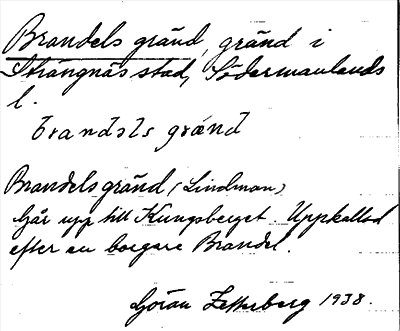 Brandels gränd, gränd i
Strängnäs stad, Södermanlands
l.
brandəls grænd
Brandelsgränd (Lindman)
Går upp till Kungsberget. Uppkallad
efter en borgare Brandel.
Göran Zetterberg 1938.